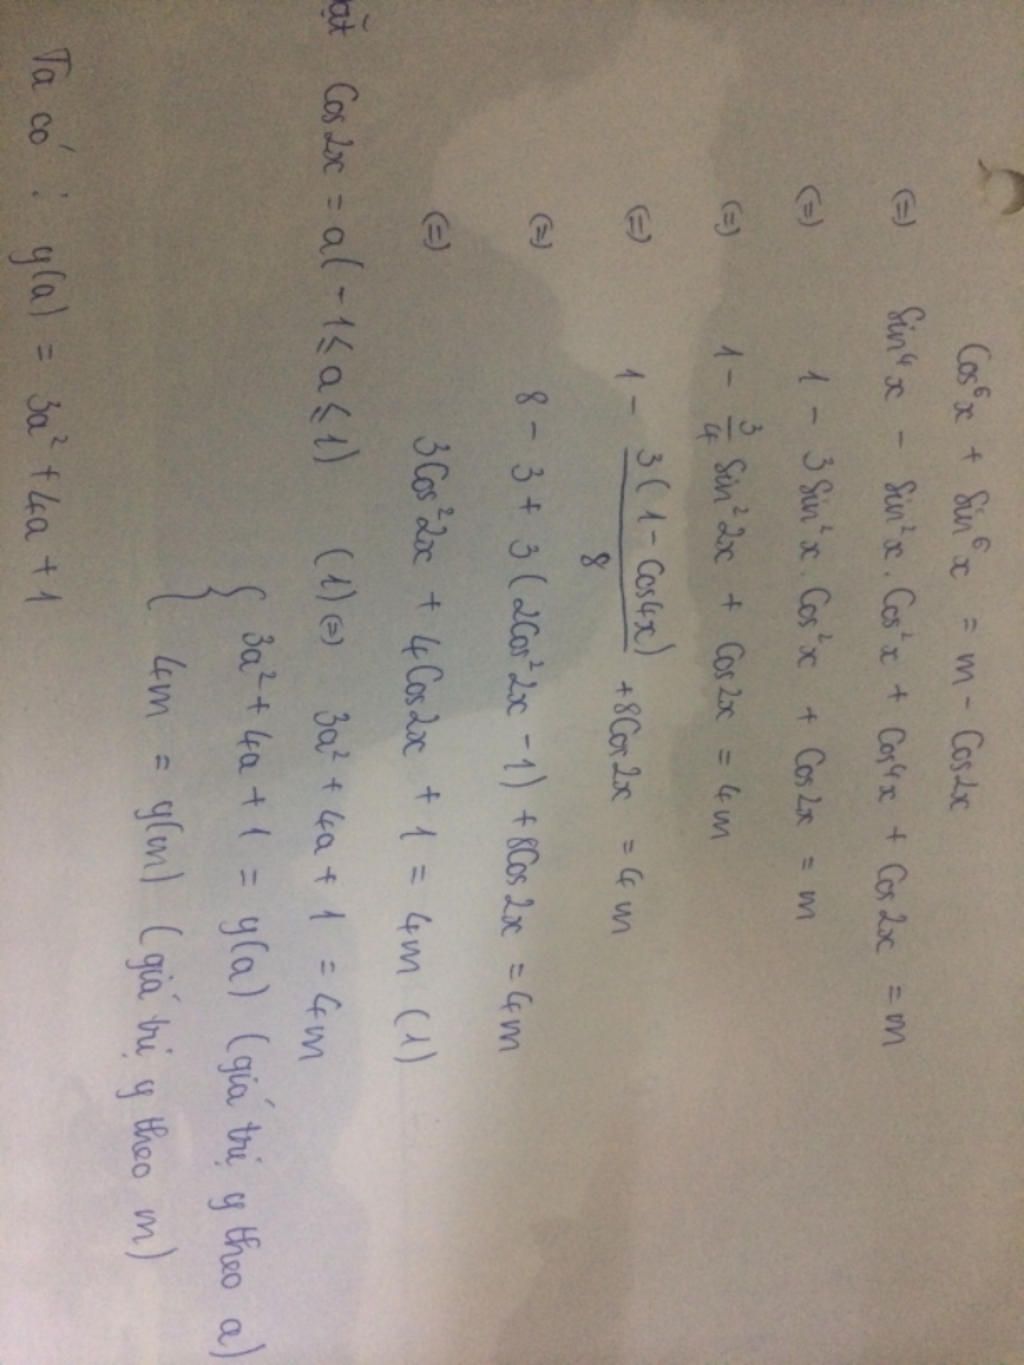 Cos⁶x + Sin⁶x = m - Cos2x
(=) Sin⁴x - Sin²x.Cos²x + Cos⁴x + Cos2x = m
(=) 1 - 3Sin²x.Cos²x + Cos2x = m
(=) 1 - 3/4 Sin²2x + Cos2x = 4m
(=) 1 - 3(1 - Cos4x)/8 + 8Cos2x = 4m
(=) 8 - 3 + 3(2Cos²2x - 1) + 8Cos2x = 4m
(=) 3Cos²2x + 4Cos2x + 1 = 4m (1)
Cos2x = a(-1 ≤ a ≤ 1) (1)(=) 3a² + 4a + 1 = 4m
{ 3a² + 4a + 1 = y(a) (giá trị y theo a)
4m = y(m) (giá trị y theo m)
Ta có : y(a) = 3a² + 4a + 1